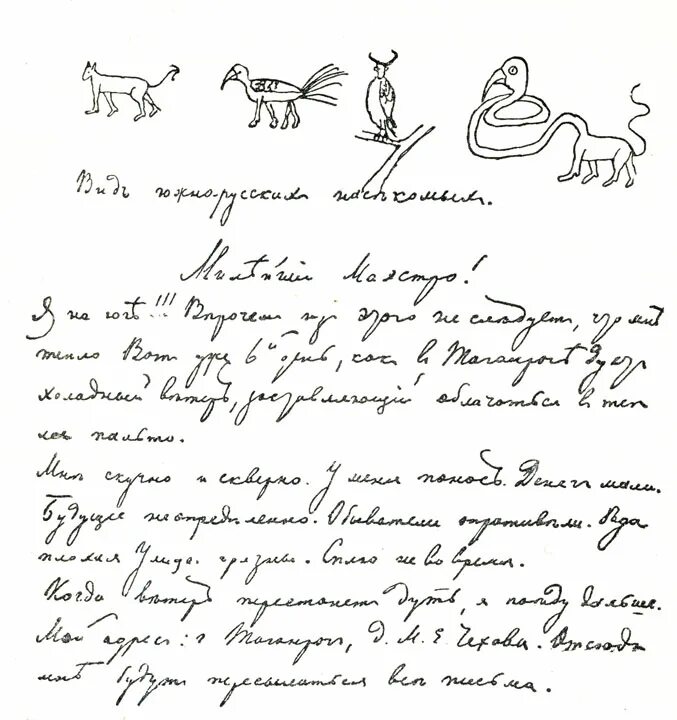 Видъ южно-русскихъ насѣкомыхъ.
Милѣйшій Маэстро!
Я на югѣ!!! Впрочемъ изъ этого не слѣдуетъ, что мнѣ
тепло Вотъ уже 6й день, какъ въ Таганрогѣ дуетъ
холодный вѣтеръ, заставляющій облачаться въ теп
лое пальто.
Мнѣ скучно и скверно. У меня поносъ. Денегъ мало.
Будущее неопредѣленно. Обыватели опротивѣли. Вода
плохая Улицы грязны. Сплю не во время.
Когда вѣтеръ перестанетъ дуть, я поѣду дальше.
Мой адресъ: г Таганрогъ, д. М. Е. Чехова. Отсюда
мнѣ будутъ пересылаться всѣ письма.